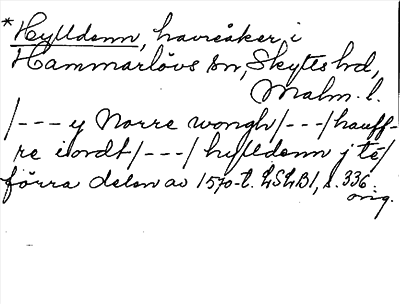 * Hylldenn, havreåker, i
Hammarlövs sn, Skytts hd,
Malm. l.
/--- y Norre wongh /---/ hauff-
re iordt /---/ hylldenn j té/
förra delen av 1570-t. LSLB1, s. 336
orig.